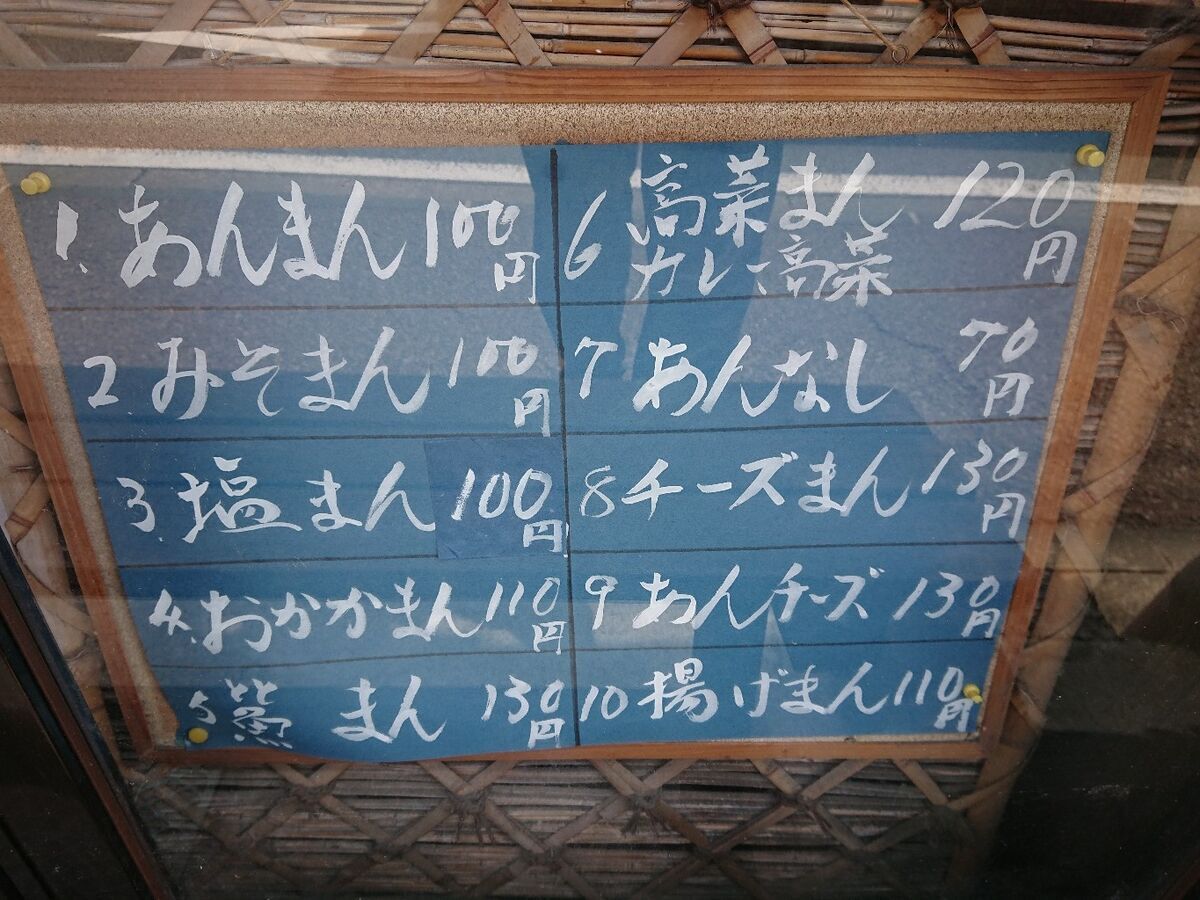 1. あんまん 100円
2 みそまん 100円
3. 塩まん 100円
4. おかかまん 110円
5 まん 130円
6 高菜まん 120円
カレー高菜
7 あんなし 70円
8 チーズまん 130円
9 あんチーズ 130円
10 揚げまん 110円